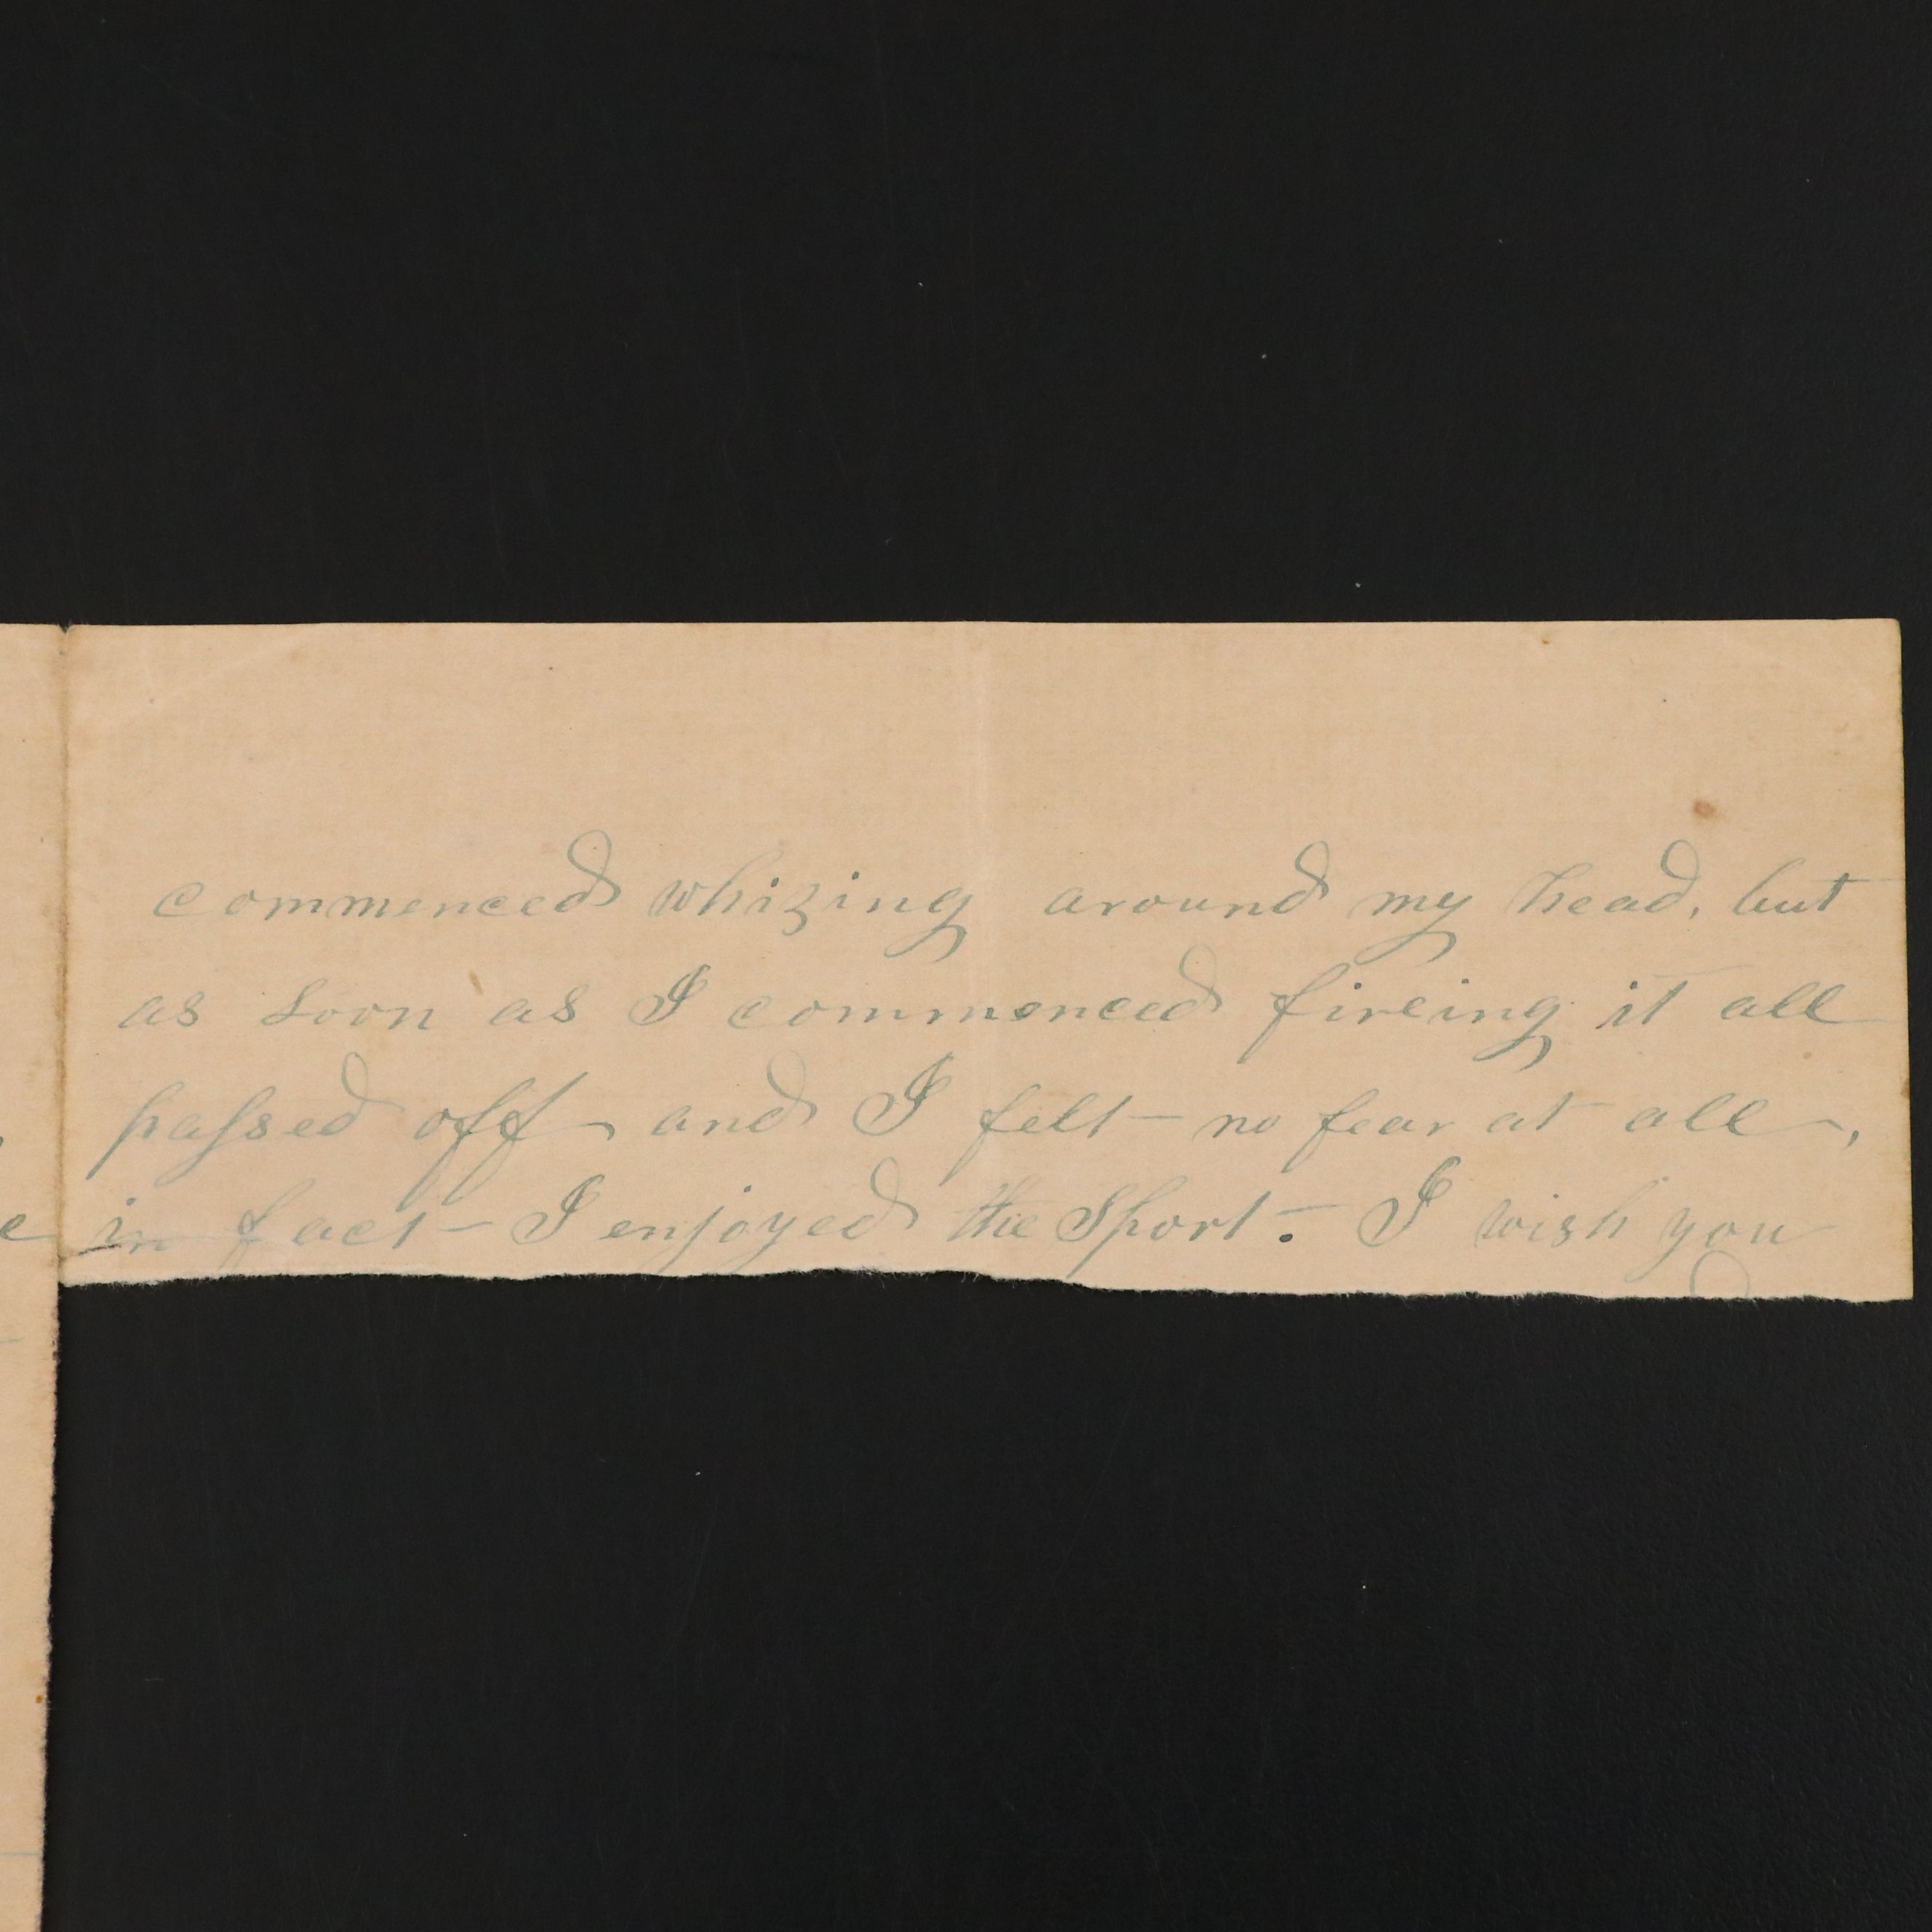 commenced whizing around my head, but
as soon as I commenced fireing it all
passed off and I felt no fear at all,
in fact I enjoyed the Sport. I wish you